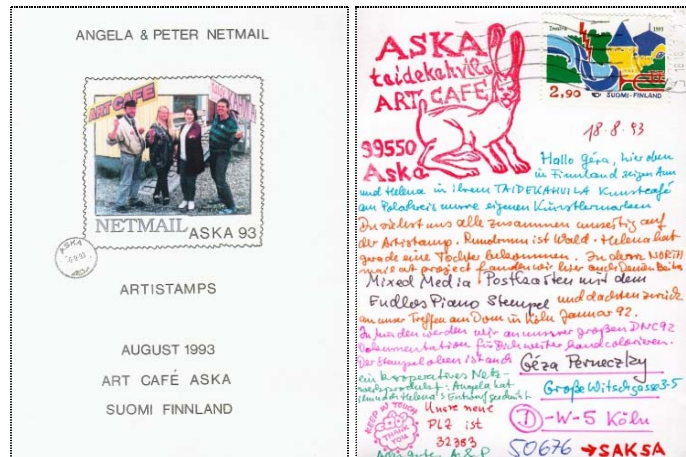 ANGELA & PETER NETMAIL
ART CAFE
NETMAIL
ASKA 93
ASKA
ARTISTAMPS
AUGUST 1993
ART CAFÉ ASKA
SUOMI FINNLAND
ASKA
taidekahvila
ART CAFÉ
99550
Aska
1993
2,90 SUOMI-FINLAND
18.8.93
Hallo Géza, hier oben
in Finnland zeigen Ann
und Helena in ihrem TAIDEKAHVILA Kunstcafé
am Polarkreis unsere eigenen Künstlermarken
Du siehst uns alle zusammen umseitig auf
der Artistamp. Rundum ist Wald. Helena hat
gerade eine Tochter bekommen. Zu deren NORTH
mail art project fanden wir hier auch Deinen
Mixed Media Postkasten mit dem
Endlos Piano Stempel und dachten zurück
an unser Treffen am Dom in Köln Januar 92.
werden wir an unserer großen DNC92
Dokumentation für Dich weiter handcolorieren.
Der Stempel oben ist auch
ein kooperatives Netz-
Angela hat
Helena's Entwurf
Géza Perneczky
Große Witschgasse 3-5
D-W-5 Köln
50676 → SAKSA
KEEP IN TOUCH
THANK YOU
Unsre neue
PLZ ist
32383
A & P